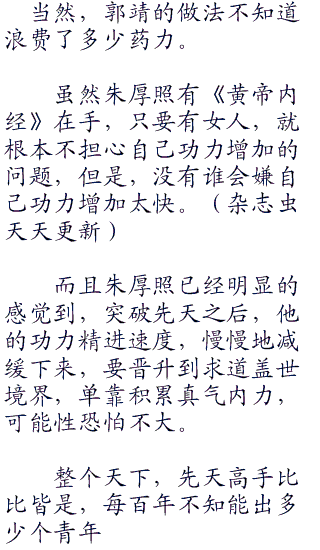 当然，郭靖的做法不知道
浪费了多少药力。
虽然朱厚照有《黄帝内
经》在手，只要有女人，就
根本不担心自己功力增加的
问题，但是，没有谁会嫌自
己功力增加太快。（杂志虫
天天更新）
而且朱厚照已经明显的
感觉到，突破先天之后，他
的功力精进速度，慢慢地减
缓下来，要晋升到求道盖世
境界，单靠积累真气内力，
可能性恐怕不大。
整个天下，先天高手比
比皆是，每百年不知能出多
少个青年